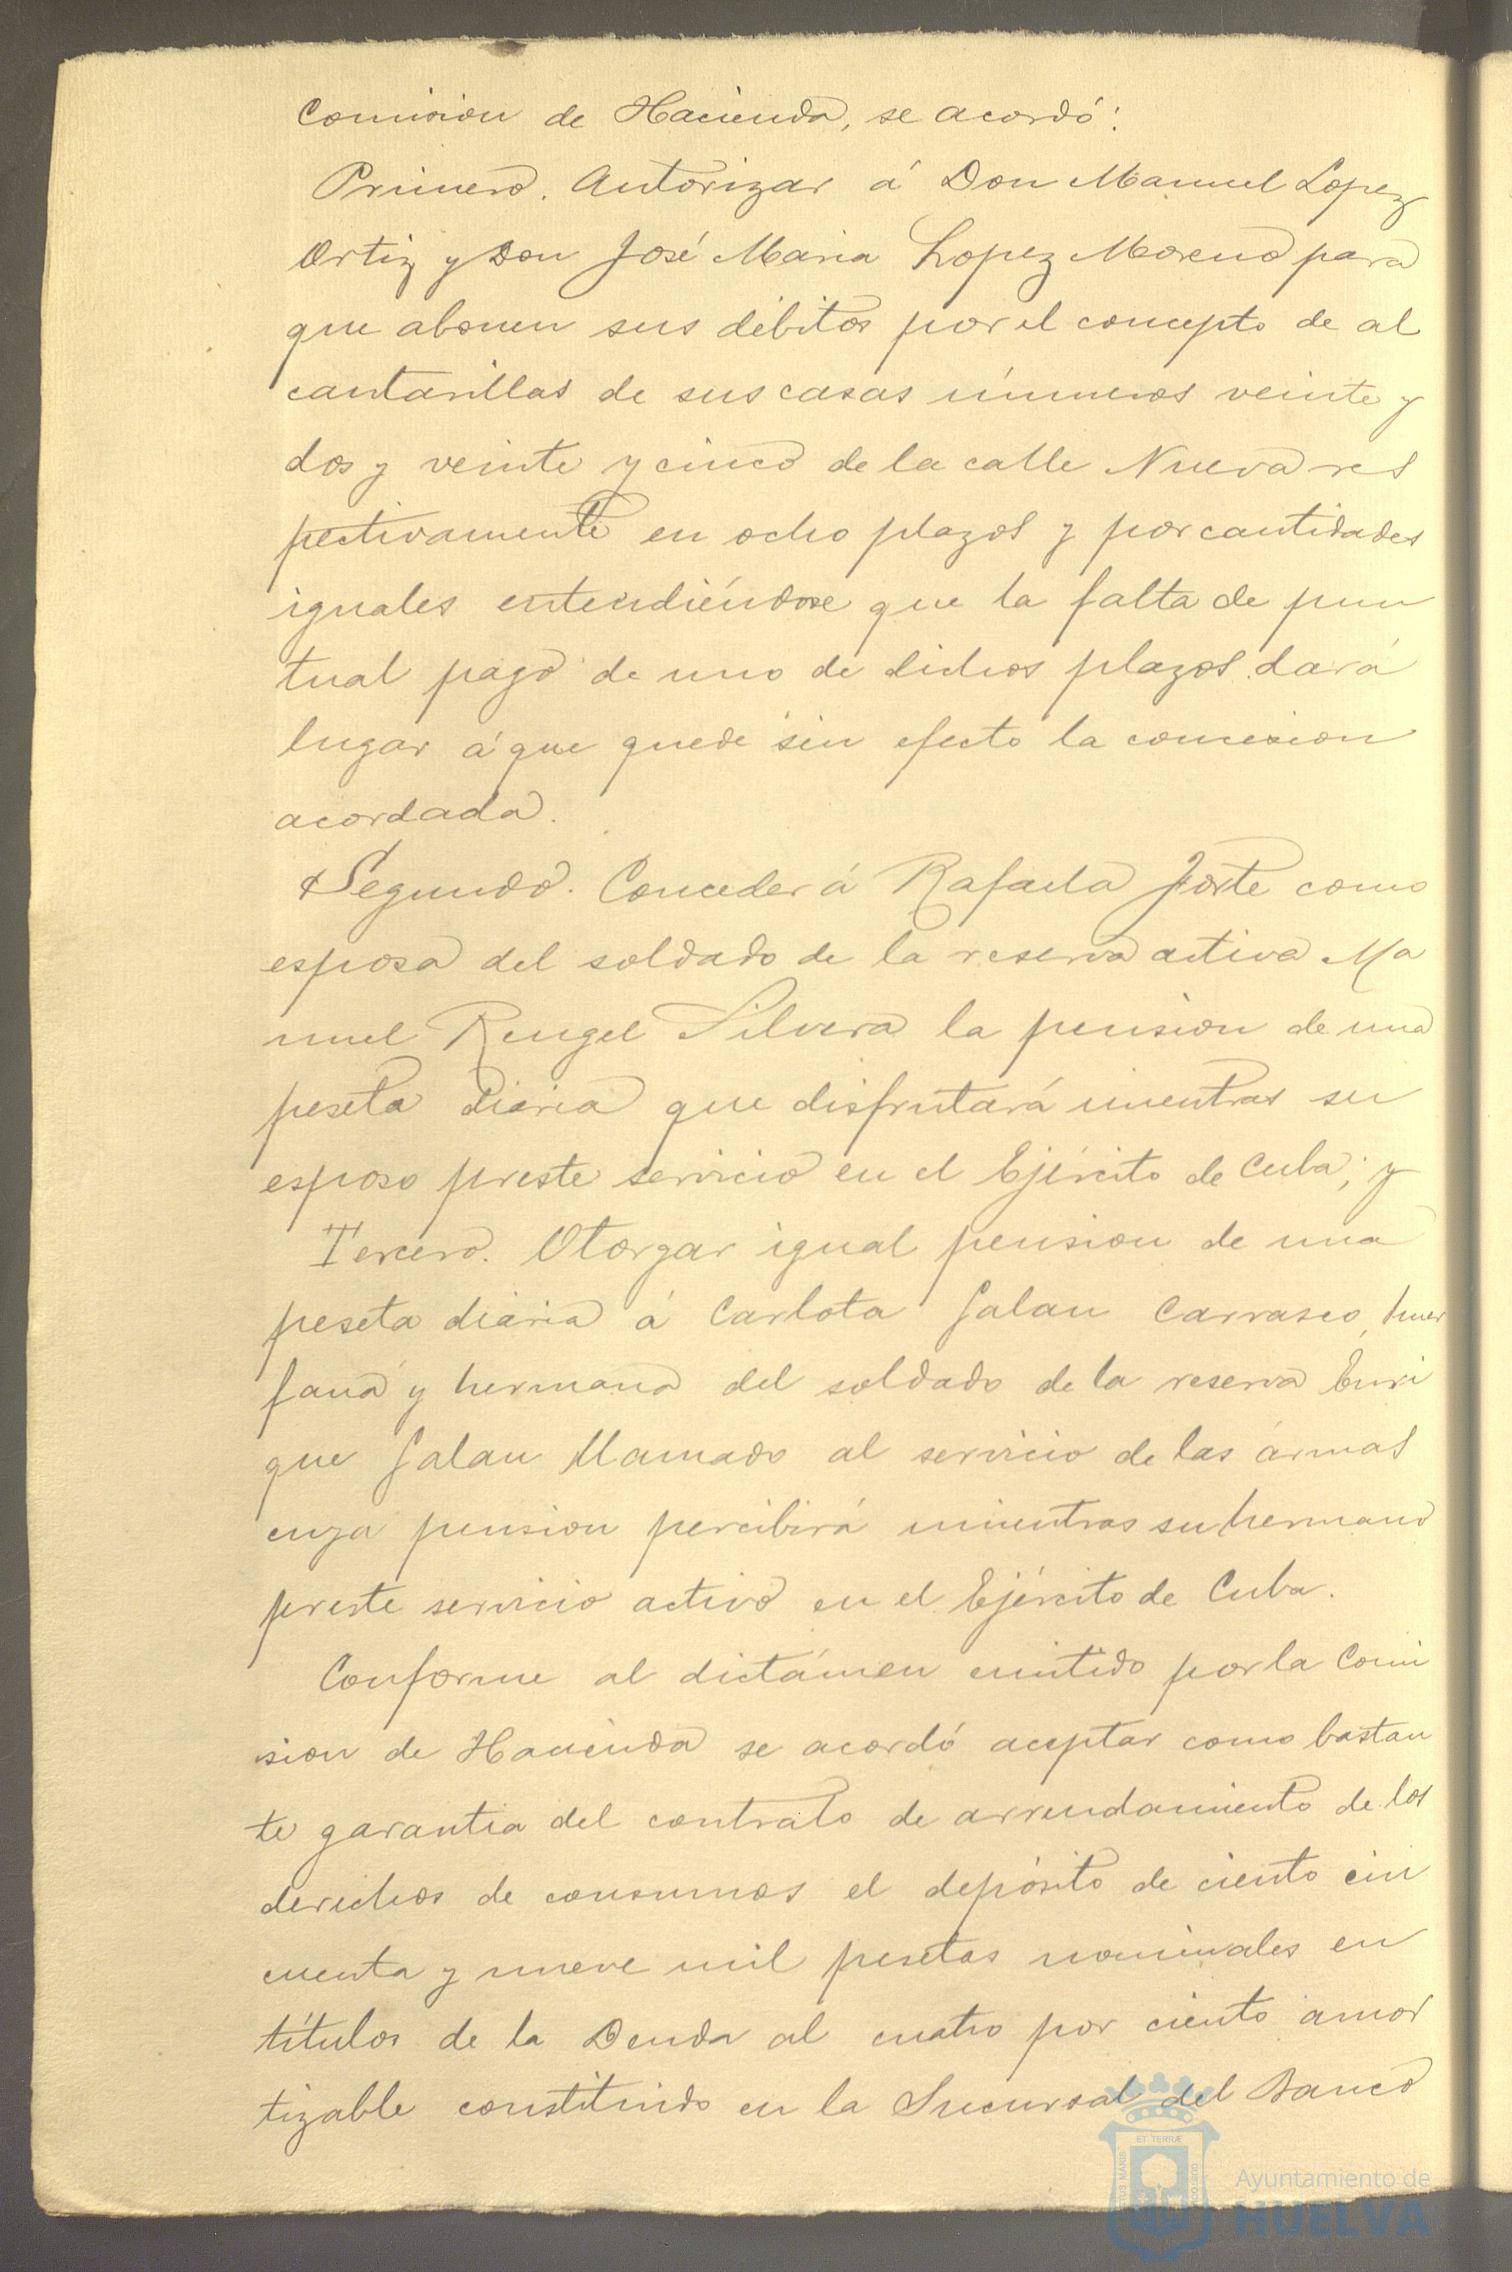 Comision de Hacienda, se acordó:
Primero. Autorizar á Don Manuel Lopez
Ortiz y Don José Maria Lopez Moreno para
que abonen sus débitos por el concepto de al
cantarillas de sus casas números veinte y
dos y veinte y cinco de la calle Nueva res
pectivamente en ocho plazos y por cantidades
iguales entendiéndose que la falta de pun
tual pago de uno de dichos plazos dará
lugar á que quede sin efecto la concesion
acordada.
Segundo. Conceder á Rafaela Forte como
esposa del soldado de la reserva activa Ma
nuel Rengel Silvera la pension de una
peseta diaria que disfrutará mientras su
esposo preste servicio en el Ejército de Cuba; y
Tercero. Otorgar igual pension de una
peseta diaria á Carlota Galan Carrasco, huer
fana y hermana del soldado de la reserva Enri
que Galan llamado al servicio de las armas
cuya pension percibirá mientras su hermano
preste servicio activo en el Ejército de Cuba.
Conforme al dictámen emitido por la Comi
sion de Hacienda se acordó aceptar como bastan
te garantia del contrato de arrendamiento de los
derechos de consumos el depósito de ciento cin
cuenta y nueve mil pesetas nominales en
títulos de la Deuda al cuatro por ciento amor
tizable constituido en la Sucursal del Banco
ET TERRÆ
Ayuntamiento de
HUELVA